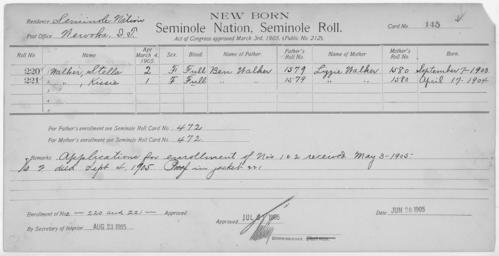 NEW BORN
Residence Seminole Nation
Seminole Nation, Seminole Roll.
Card No. 145
Post Office Wewoka, I.T.
Act of Congress approved March 3rd, 1905. (Public No. 212).
Roll No. Name Age March 4, 1905 Sex. Blood. Name of Father Father's Roll No. Name of Mother Mother's Roll No. Born.
220 Walker, Stella 2 F Full Ben Walker 1579 Lizzie Walker 1580 September 7-1903
221 " , Kissie 1 F Full " " 1579 " " 1580 April 17-1904
For Father's enrollment see Seminole Roll Card No. 472
For Mother's enrollment see Seminole Roll Card No. 472
Remarks Applications for enrollment of Nos 1 & 2 received May 3-1905
No 2 died Sept 4, 1905 Proof in jacket
Enrollment of Nos - 220 and 221 - Approved
Approved JUL 1905
Date JUN 26 1905
By Secretary of Interior AUG 23 1905
Commissioner